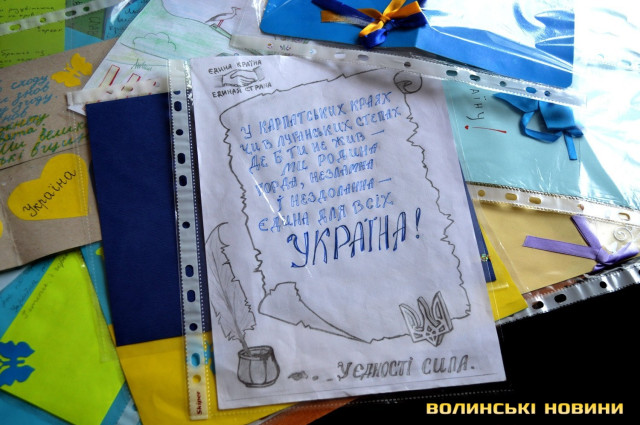 ЄДИНА КРАЇНА
ЕДИНАЯ СТРАНА
У КАРПАТСЬКИХ КРАЯХ
ЧИ В ЛУГАНСЬКИХ СТЕПАХ
ДЕ Б ТИ НЕ ЖИВ —
МИ РОДИНА
ГОРДА, НЕЗЛАМНА
Й НЕЗДОЛАННА —
ЄДИНА ДЛЯ ВСІХ
УКРАЇНА!
... У ЄДНОСТІ СИЛА.
Україна
їну!
ВОЛИНСЬКІ НОВИНИ